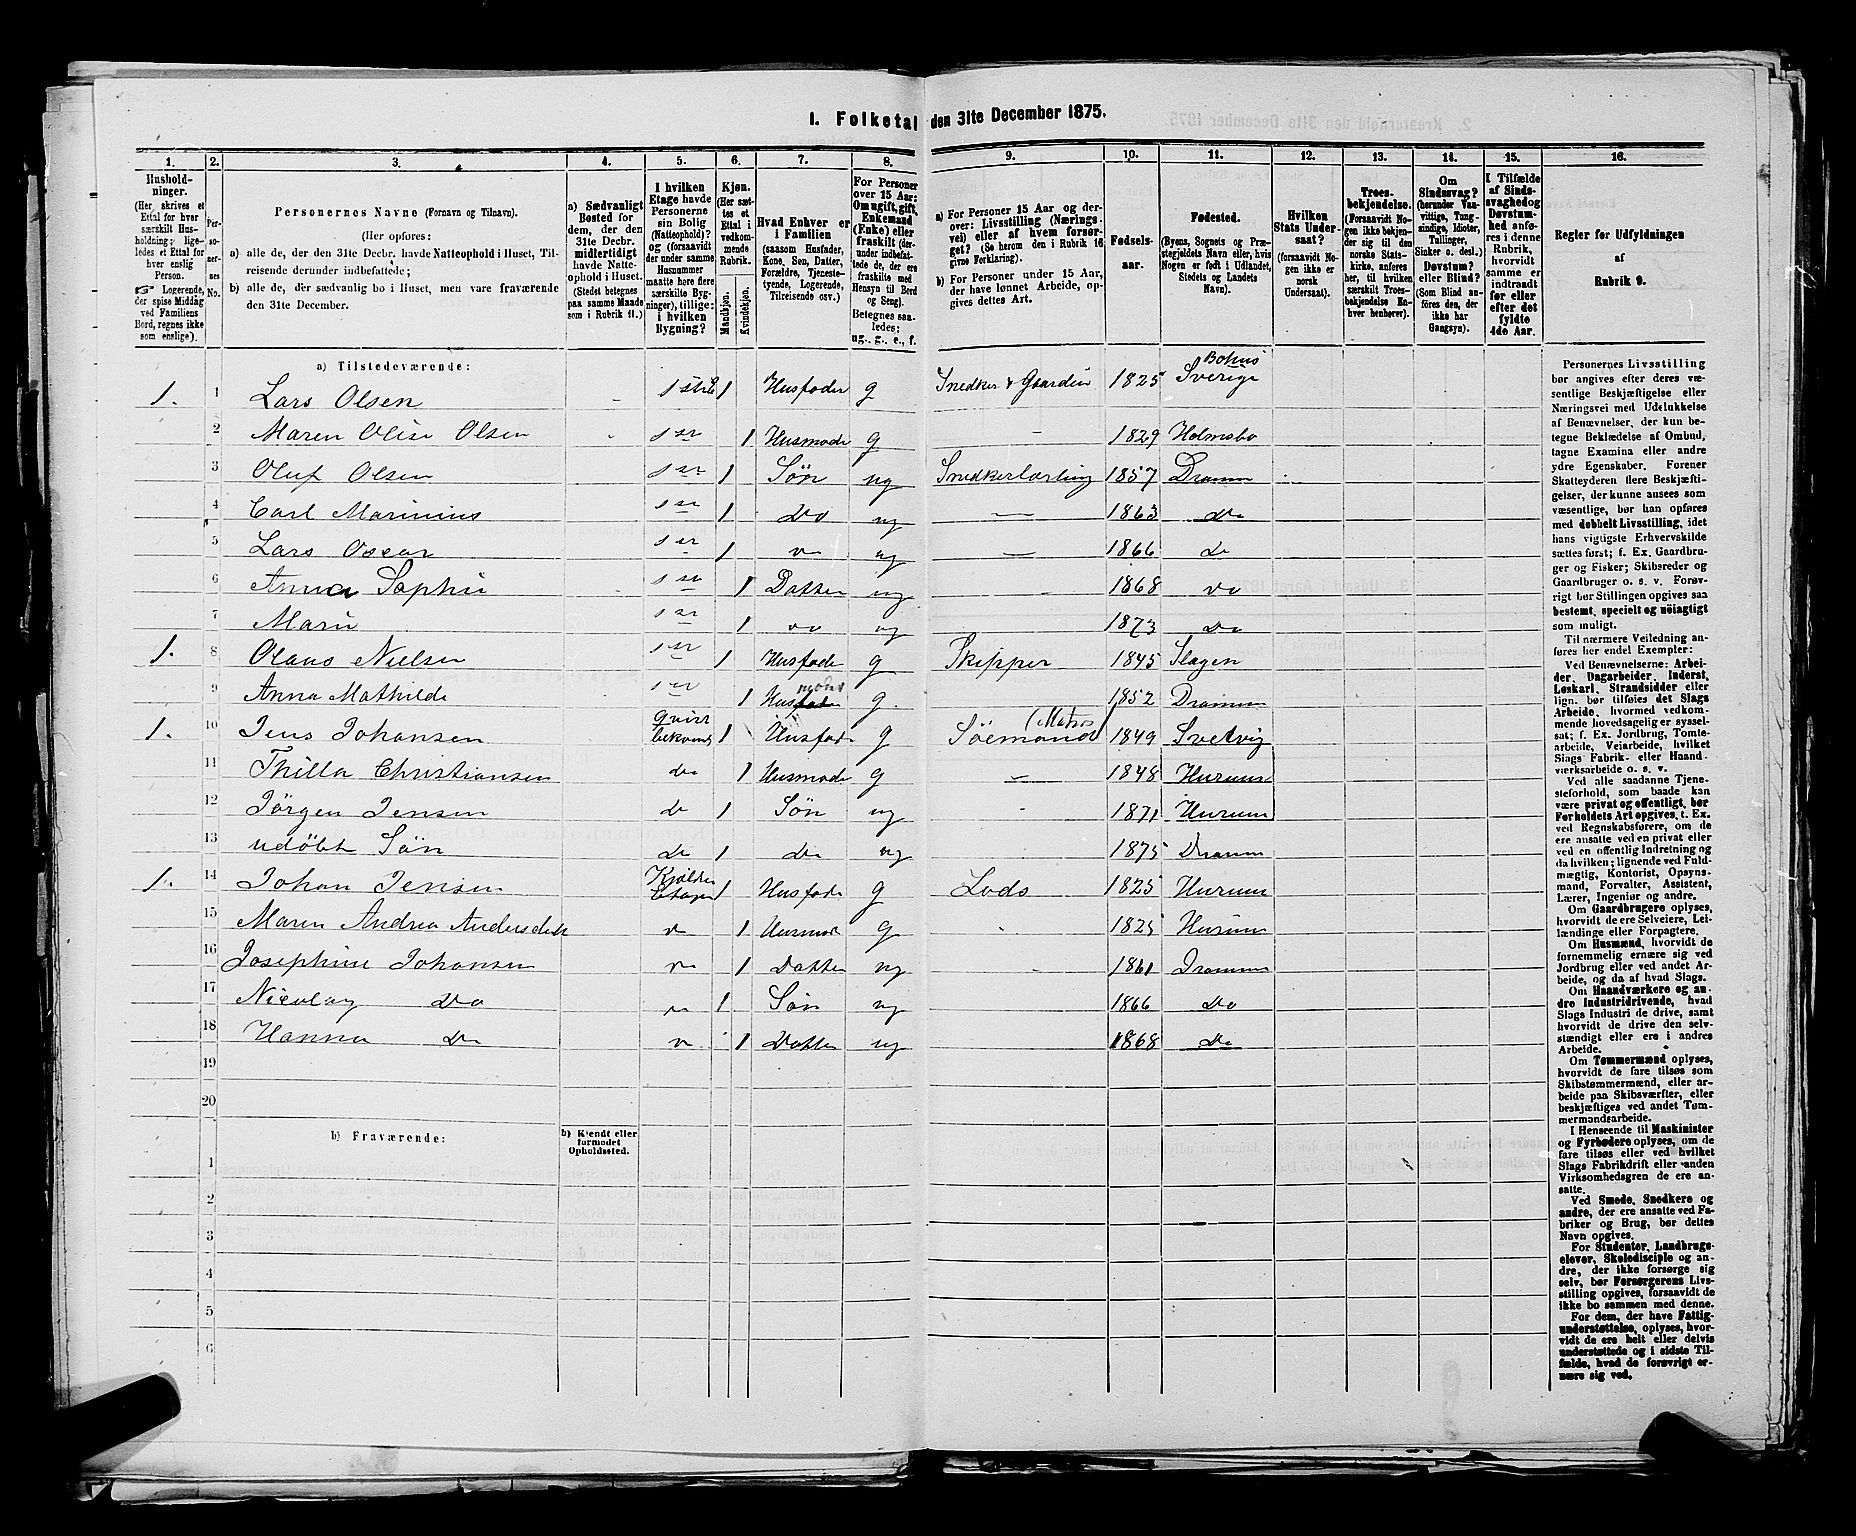 1. Folketal den 31te December 1875.
1. 2. 3. 4. 5. 6. 7. 8. 9. 10. 11. 12. 13. 14. 15. 16.
Husholdninger. (Her skrives et Ettal for hver særskilt Husholdning; ligeledes et Ettal for hver enslig Person. ☞ Logerende, der spise Middag ved Familiens Bord, regnes ikke som enslige).
Personernes No.
Personernes Navne (Fornavn og Tilnavn).
(Her opføres:
a) alle de, der den 31te Decbr. havde Natteophold i Huset, Tilreisende derunder indbefattede;
b) alle de, der sædvanlig bo i Huset, men vare fraværende den 31te December.
a) Sædvanligt Bosted for dem, der den 31te Decbr. midlertidigt havde Natteophold i Huset. (Stedet betegnes paa samme Maade som i Rubrik 11.)
I hvilken Etage havde Personerne sin Bolig (Natteophold)? og (forsaavidt der under samme Husnummer maatte høre flere særskilte Bygninger), tillige: i hvilken Bygning?
Kjøn. (Her sættes et Ettal i vedkommende Rubrik.
Mandkjøn. Kvindekjøn.
Hvad Enhver er i Familien (saasom Husfader, Kone, Søn, Datter, Forældre, Tjenestetyende, Logerende, Tilreisende osv.)
For Personer over 15 Aar: Om ugift, gift, Enkemand (Enke) eller fraskilt (derunder indbefattede de, der ere fraskilte med Hensyn til Bord og Seng). Betegnes saaledes: ug., g., e., f.
a) For Personer 15 Aar og derover: Livsstilling (Næringsvei) eller af hvem forsørget? (Se herom den i Rubrik 16 givne Forklaring).
b) For Personer under 15 Aar, der have lønnet Arbeide, opgives dettes Art.
Fødselsaar.
Fødested. (Byens, Sognets og Præstegjeldets Navn eller, hvis Nogen er født i Udlandet, Stedets og Landets Navn).
Hvilken Stats Undersaat? (forsaavidt Nogen ikke er norsk Undersaat).
Troesbekjendelse. (Forsaavidt Nogen ikke bekjender sig til den norske Statskirke, anføres her, til hvilken særskilt Troesbekjendelse Enhver henhører).
Om Sindssvag? (herunder Vanvittige, Tungsindige, Idioter, Tullinger, Sinker o. desl.) Døvstum? eller Blind? (Som Blind anføres den, der ikke har Gangsyn).
I Tilfælde af Sindssvaghed og Døvstumhed anføres i denne Rubrik, hvorvidt samme er indtraadt før eller efter det fyldte 4de Aar.
Regler for Udfyldningen af Rubrik 9.
a) Tilstedeværende:
1. 1 Lars Olsen 1 Husfader g Snedker & Gaardeier 1825 Bohus Sverige
2 Maren Olise Olsen 1 Husmode g 1829 Holmsbo
3 Oluf Olsen 1 Søn ug Snedkerlærling 1857 Dramm
4 Carl Marinius 1 do ug 1863 do
5 Lars Oscar 1 do ug 1866 do
6 Anna Sophie 1 Datter ug 1868 do
7 Marie 1 do ug 1873 do
1. 8 Olaus Nielsen 1 Husfade g Skipper 1845 Slagen
9 Anna Mathilde 1 Husmoder g 1852 Drammen
1. 10 Jens Johansen qvist bekvem 1 Husfade g Søemand (Matros) 1849 Svelvig
11 Thilla Christiansen do 1 Husmode g 1848 Hurum
12 Jörgen Jensen do 1 Søn ug 1871 Hurum
13 udöbt Søn do 1 do ug 1875 Dramm
1. 14 Johan Jensen Kjælder Etagen 1 Husfade g Lods 1825 Hurum
15 Maren Andrea Andersdatt do 1 Husmod g 1825 Hurum
16 Josephine Johansen do 1 Datter ug 1861 Dramm
17 Nicolay do do 1 Søn ug 1866 do
18 Hanna do do 1 Datter ug 1868 do
19
20
b) Fraværende:
b) Kjendt eller formodet Opholdssted.
1
2
3
4
5
6
Personernes Livsstilling
bør angives efter deres væ-
sentlige Beskjæftigelse eller
Næringsvei med Udelukkelse
af Benævnelser, der kun be-
tegne Beklædelse af Ombud,
tagne Examina eller andre
ydre Egenskaber. Forener
Skatteyderen flere Beskjæfti-
gelser, der kunne ansees som
væsentlige, bør han opføres
med dobbelt Livsstilling, idet
hans vigtigste Erhvervskilde
sættes først; f. Ex. Gaardbru-
ger og Fisker; Skibsreder og
Gaardbruger o. s. v. Forøv-
rigt bør Stillingen opgives saa
bestemt, specielt og nöiagtigt
som muligt.
Til nærmere Veiledning an-
føres her endel Exempler:
Ved Benævnelserne: Arbei-
der, Dagarbeider, Inderst,
Løskarl, Strandsidder eller
lign. bør tilføies det Slags
Arbeide, hvormed vedkom-
mende hovedsagelig er syssel-
sat; f. Ex. Jordbrug, Tomte-
arbeide, Veiarbeide, hvilket
Slags Fabrik- eller Haand-
værksarbeide o. s. v.
Ved alle saadanne Tjene-
steforhold, som baade kan
være privat og offentligt, bør
Forholdets Art opgives, f. Ex.
ved Regnskabsførere, om de
ere ansatte ved en privat eller
ved en offentlig Indretning og
da hvilken; lignende ved Fuld-
mægtig, Kontorist, Opsyns-
mand, Forvalter, Assistent,
Lærer, Ingeniør og andre.
Om Gaardbrugere oplyses,
hvorvidt de ere Selveiere, Lei-
lændinge eller Forpagtere.
Om Husmænd, hvorvidt de
fornemmelig ernære sig ved
Jordbrug eller ved andet Ar-
beide, og da af hvad Slags.
Om Haandværkere og an-
dre Industridrivende, hvad
Slags Industri de drive, samt
hvorvidt de drive den selv-
stændigt eller ere i andres
Arbeide.
Om Tømmermænd oplyses,
hvorvidt de fare tilsøs som
Skibstømmermænd, eller ar-
beide paa Skibsværfter, eller
beskjæftiges ved andet Tøm-
mermandsarbeide.
I Henseende til Maskinister
og Fyrbødere oplyses, om de
fare tilsøs eller ved hvilket
Slags Fabrikdrift eller anden
Virksomhedsgren de ere an-
satte.
Ved Smede, Snedkere og
andre, der ere ansatte ved Fa-
briker og Brug, bør dettes
Navn opgives.
For Studenter, Landbrugs-
elever, Skoledisciple og an-
dre, der ikke forsørge sig
selv, bør Forsørgerens Livs-
stilling opgives, forsaavidt de
ikke bo sammen med denne.
For dem, der have Fattig-
understøttelse, oplyses, hvor-
vidt de ere helt eller delvis
understøttede og i sidste Til-
fælde, hvad de forøvrigt er-
nære sig ved.